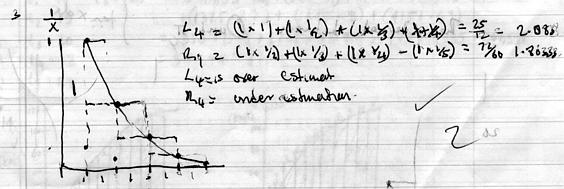 3 1/x
L4 = (1 x 1) + (1 x 1/2) + (1 x 1/3) + (1 x 1/4) = 25/12 = 2.083
R4 = (1 x 1/2) + (1 x 1/3) + (1 x 1/4) - (1 x 1/5) = 77/60 1.28333
L4 = is over estimat
R4 = under estimation.
1
2